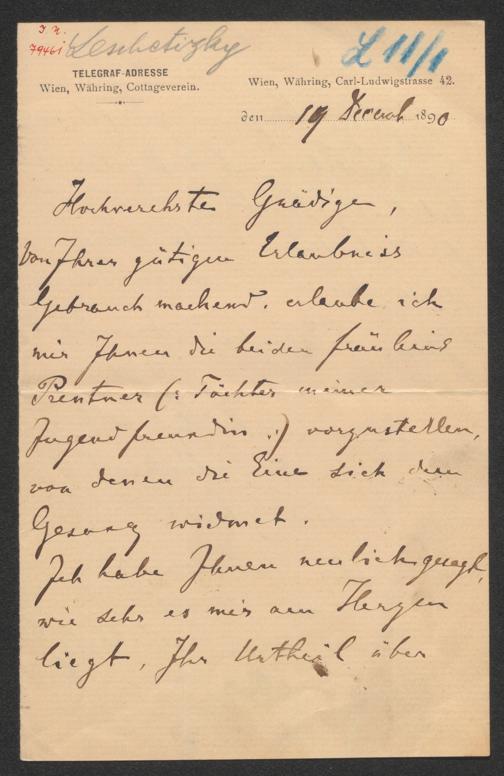 I. N.
79461
Leschetizky
L 11/1
TELEGRAF-ADRESSE
Wien, Währing, Cottageverein.
Wien, Währing, Carl-Ludwigstrasse 42.
den 19 Decemb 1890
Hochverehrte Gnädige,
Von Ihrer gütigen Erlaubniss
Gebrauch machend, erlaube ich
mir Ihnen die beiden Fräuleins
Prentner (: Töchter meiner
Jugendfreundin :) vorzustellen,
von denen die Eine sich dem
Gesang widmet.
Ich habe Ihnen neulich gesagt,
wie sehr es mir am Herzen
liegt, Ihr Urtheil über